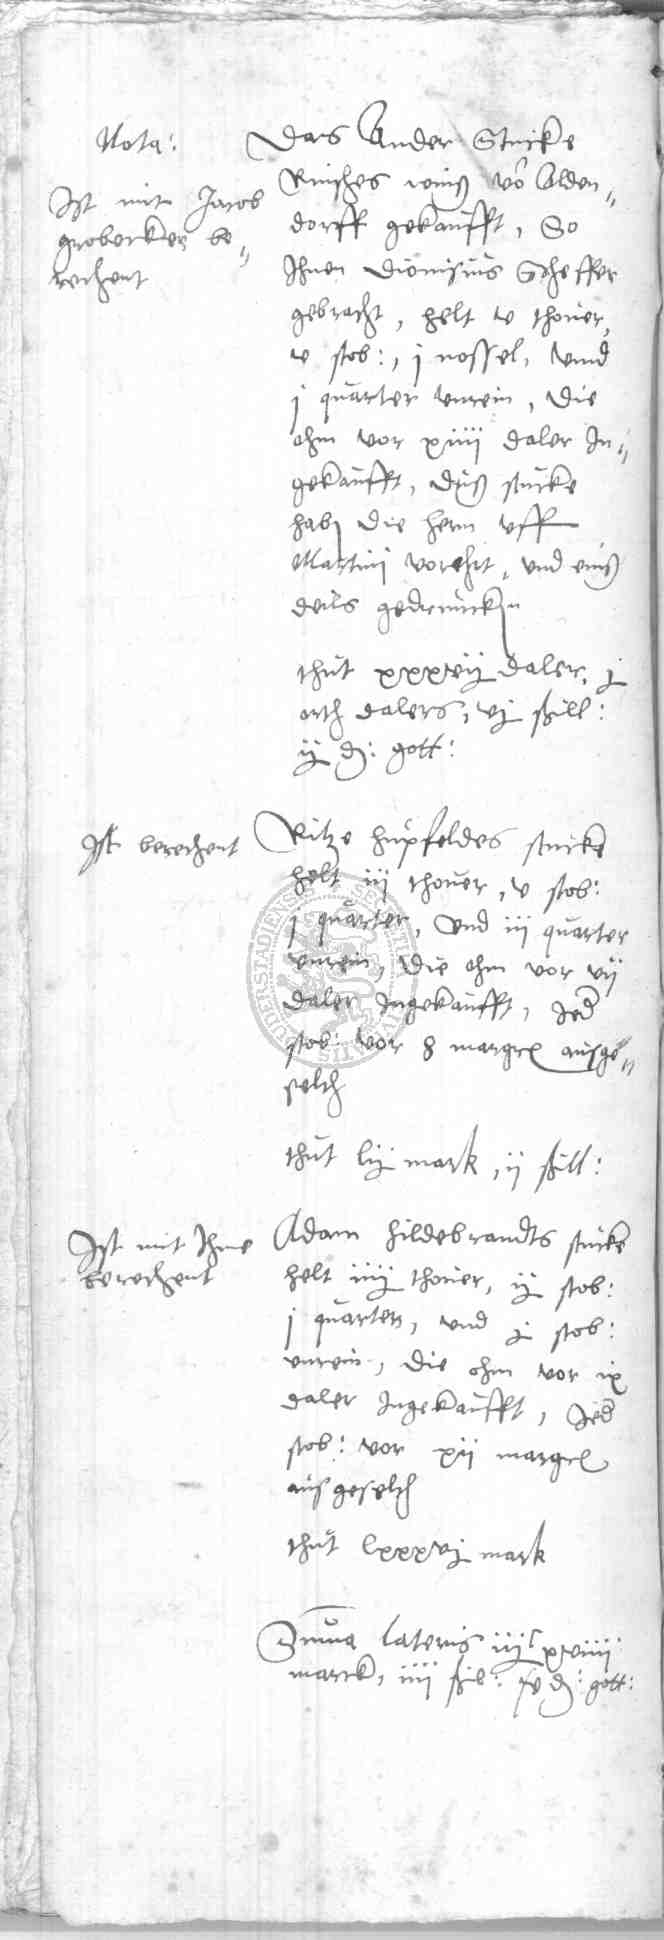 Nota:
Ist mit Jacob
grobecker be„
rechent
Das Ander Stucke
Rinsches weins vō Alden„
dorff gekaufft, So
Ihnen Dionisius Scheffer
gebracht, helt v thover,
v stob:, j nossel, vnnd
j quarter vnrein, die
ohm vor xiiii daler In„
gekaufft, diß stucke
habn die hern vff
Martini vorehrt, vnd eins
deils gedruncken
thut xxxvij daler, j
orth dalers, vj ßill:
ij d: gott:
Ist berechent
Ritze hupfeldes stucke
helt iij thover, v stob:
j quarter, vnd iij quarter
vnrein, die ohm vor vij
daler Ingekaufft, Jed
stob: vor 8 margk ausge„
selth
thut lij mark, ij ßill:
Ist mit Ihme
berechent
Adam hildebrandts stucke
helt iiij thover, ij stob:
j quarter, vnd j stob:
vnrein, die ohm vor ix
daler Ingekaufft, Jed
stob: vor xij margk
ausgeselth
thut lxxxvj mark
Suma lateris iijC xviiij
marck, iiii ßil: d: gott: